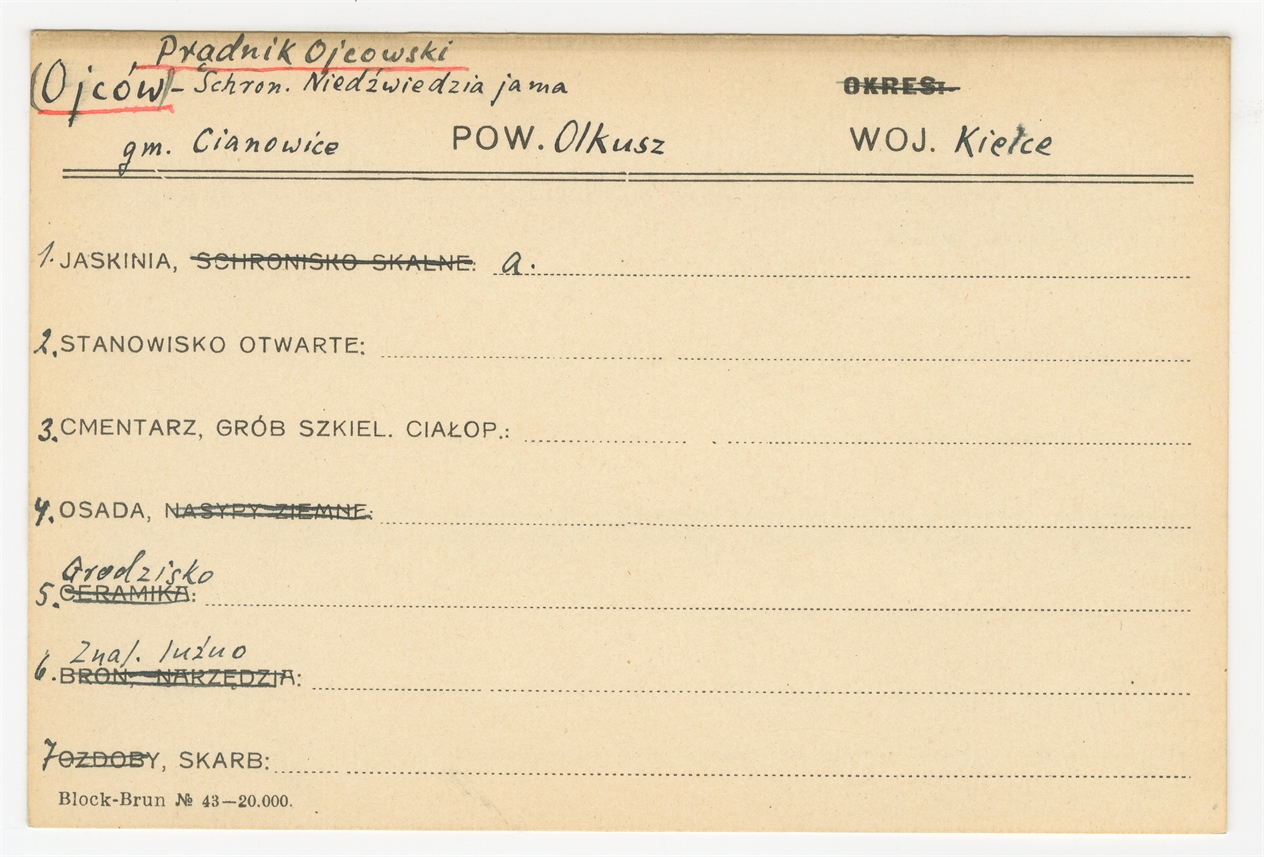 Prądnik Ojcowski
(Ojców) - Schron. Niedźwiedzia jama
OKRES:
gm. Cianowice POW. Olkusz WOJ. Kielce
1. JASKINIA, SCHRONISKO SKALNE: a.
2. STANOWISKO OTWARTE:
3. CMENTARZ, GRÓB SZKIEL. CIAŁOP.:
4. OSADA, NASYPY ZIEMNE:
Grodzisko
5. CERAMIKA:
Znaj. luźno
6. BROŃ, NARZĘDZIA:
7 OZDOBY, SKARB:
Block-Brun № 43—20.000.